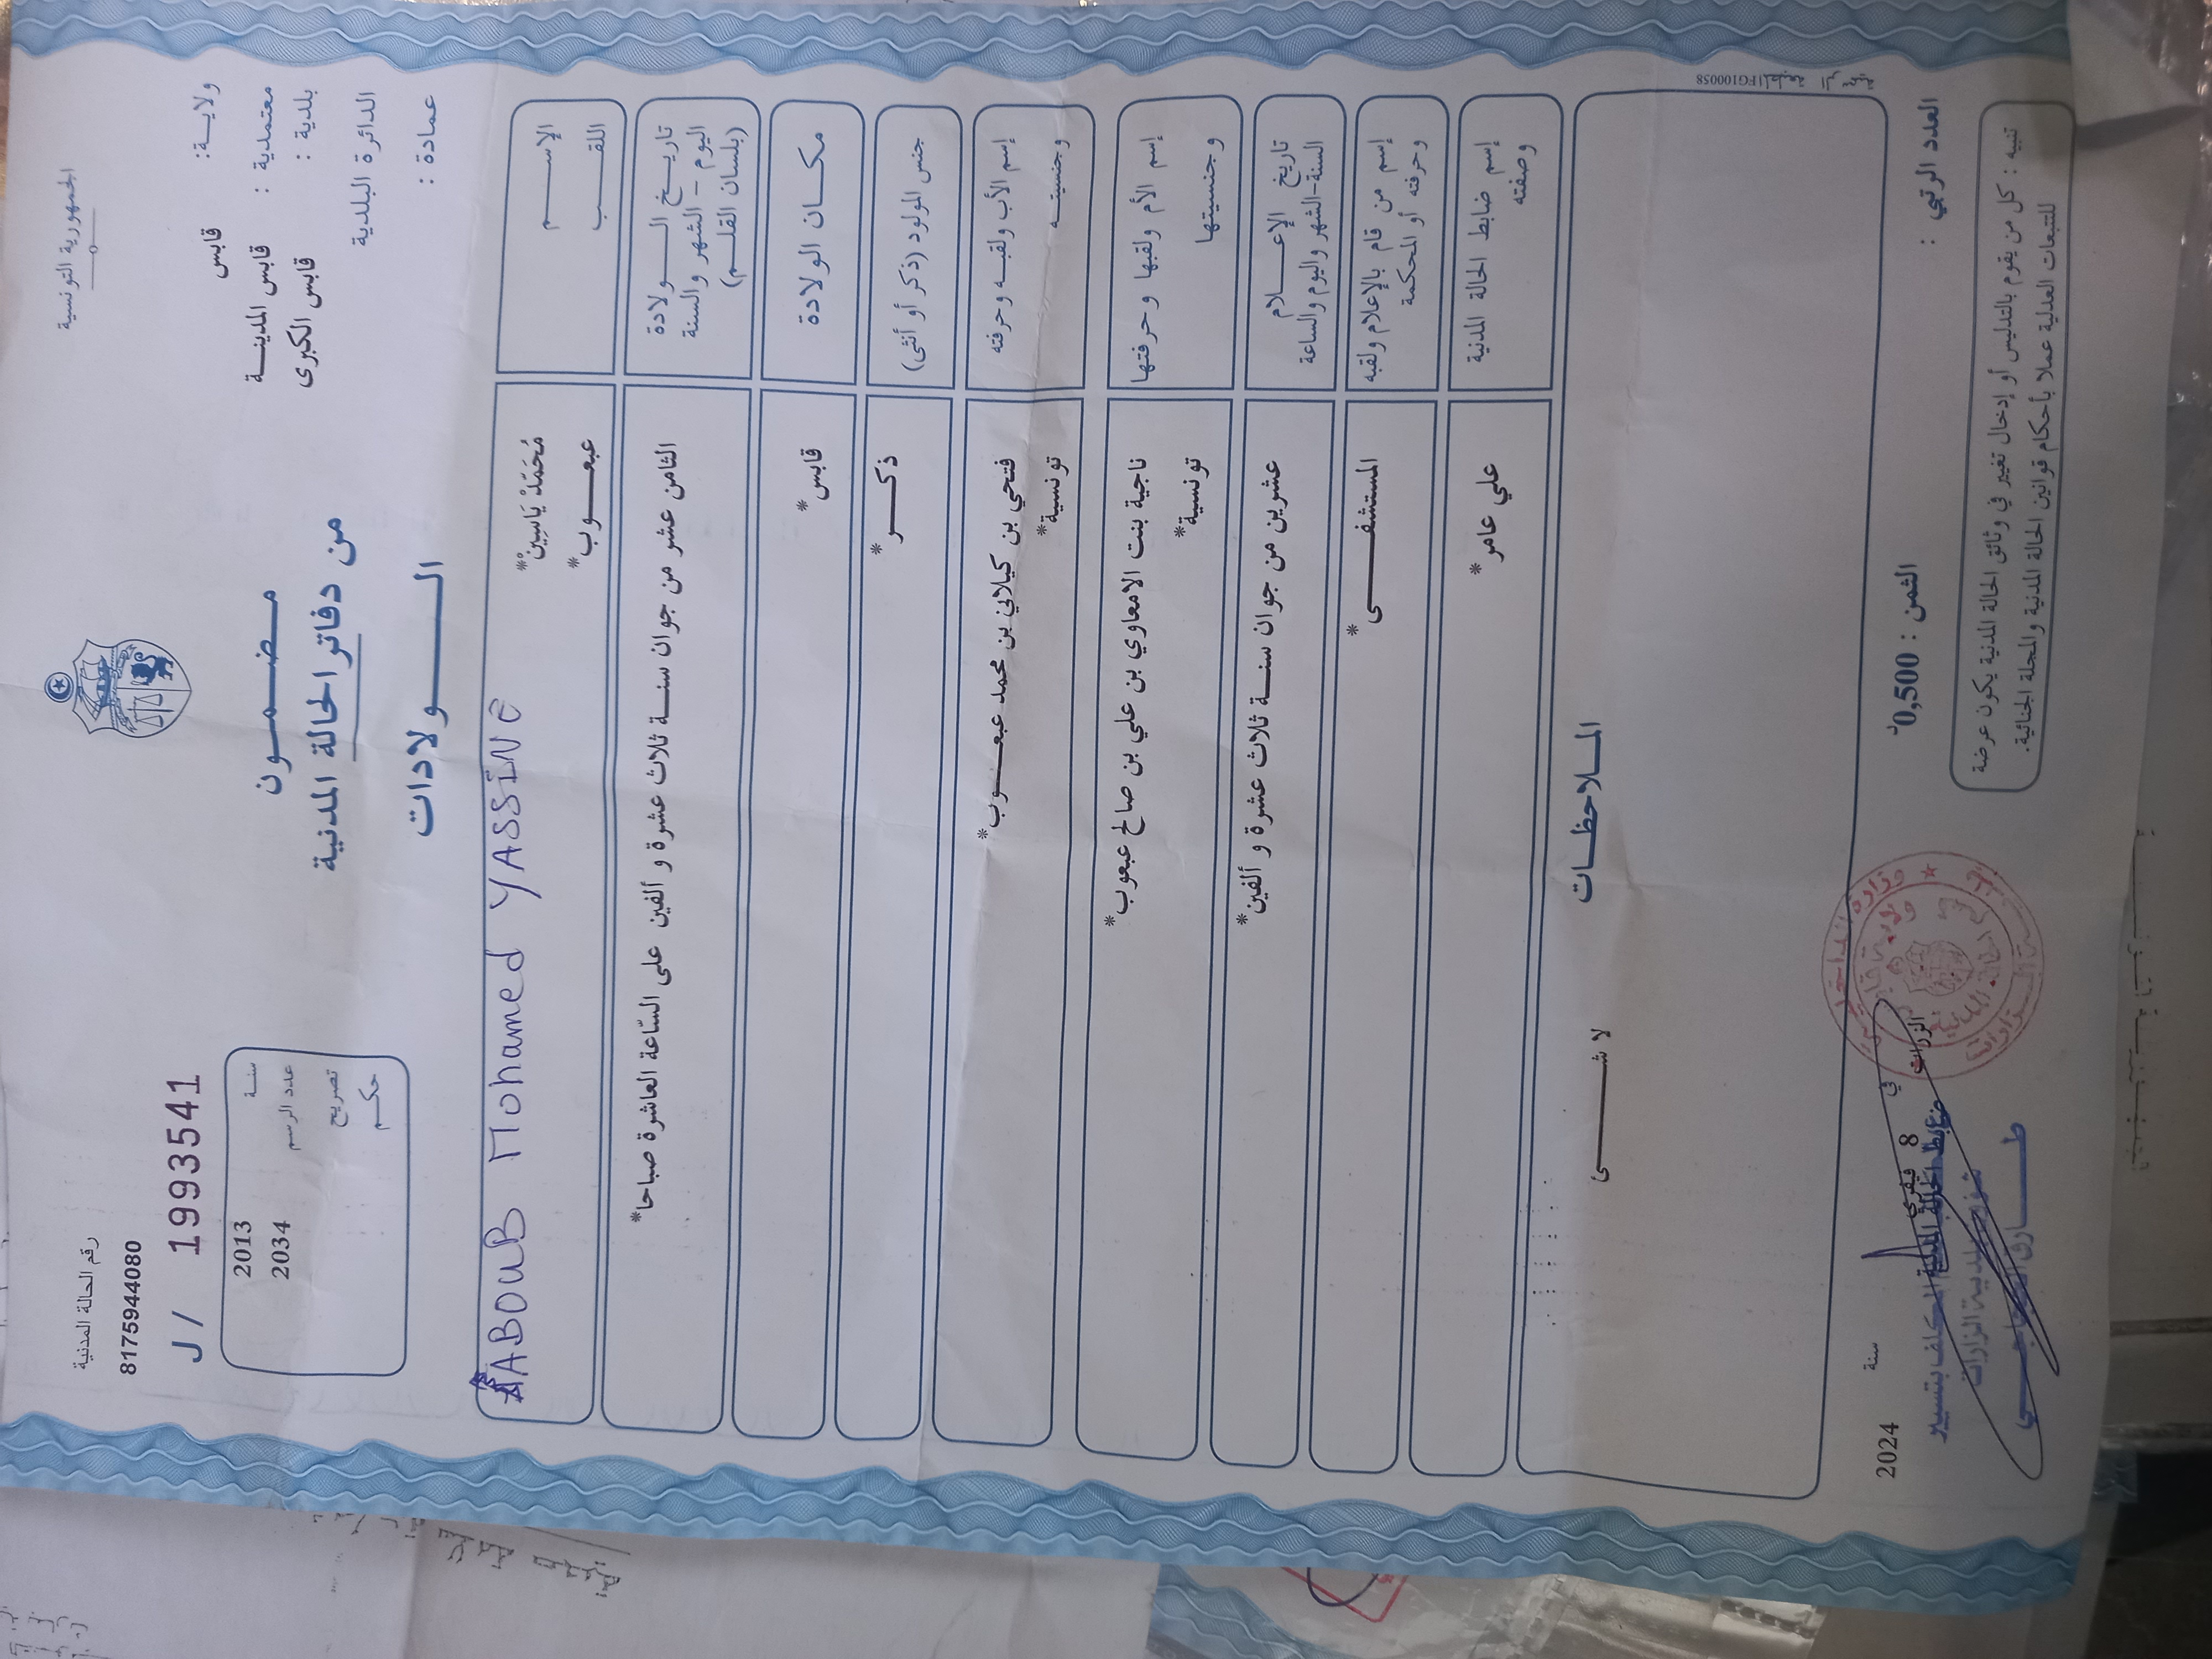 الجمهورية التونسية
ولاية: قابس
معتمدية : قابس المدينـــة
بلدية : قابس الكبرى
الدائرة البلدية
عمادة :
مـضـمـــون
من دفاتر الحالة المدنية
الـــولادات
رقم الحالة المدنية
81759444080
J / 1993541
سنـة 2013
عدد الرسم 2034
تصريح
حكـم
الإســـم مُحَمَّدْ يَاسِينْ*
اللقـــب عبعـــوب*
AABOUB Mohamed YASSINE
تاريــخ الـــولادة
اليوم - الشهر والسنة
(بلسان القلـم)
الثامن عشر من جوان سنــة ثلاث عشرة و ألفين على السّاعة العاشرة صباحا*
مكــان الولادة
قابس*
جنس المولود (ذكر أو أنثى)
ذكـــر*
إسم الأب ولقبـه وحرفته
وجنسيتــه
فتحي بن كيلاني بن محمد عبعـــوب*
تونسية*
إسم الأم ولقبها وحرفتها
وجنسيتها
ناجية بنت الامعاوي بن علي بن صالح عبعوب*
تونسية*
تاريخ الإعـــلام
السنة-الشهر واليوم والساعة
عشرين من جوان سنــة ثلاث عشرة و ألفين*
إسم من قام بالإعلام ولقبه
وحرفته أو المحكمة
المستشفـــى*
إسم ضابط الحالة المدنية
وصفته
علي عامر*
المــلاحظــات
لا شـــىء
المطبعة الرسمية FG100058
العدد الرتبي :
الثمن : 0,500د
الزارات في 8 فيفري سنة 2024
ضابط الحالة المدنية المكلف بتسيير
شؤون بلدية الزارات
تنبيه : كل من يقوم بالتدليس أو إدخال تغيير في وثائق الحالة المدنية يكون عرضة
للتتبعات العدلية عملا بأحكام قوانين الحالة المدنية والمجلة الجنائية.